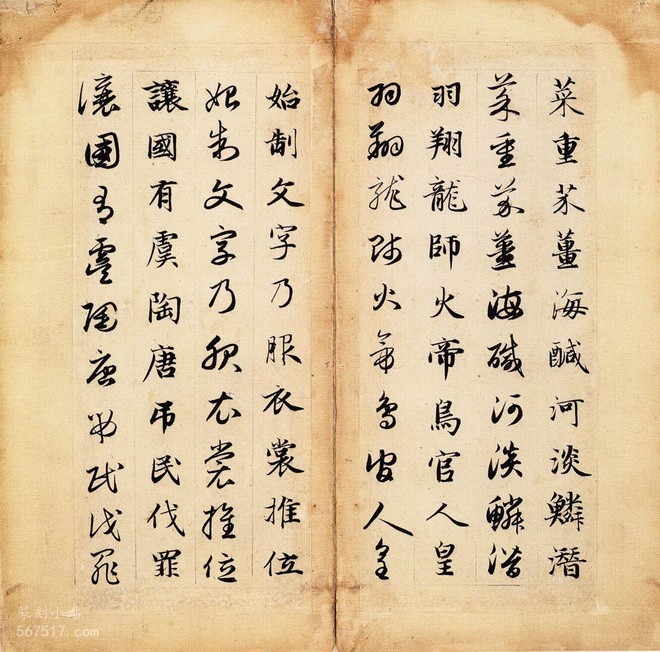 菜重芥薑海醎河淡鱗潛
菜重芥薑海醎河淡鱗潛
羽翔龍師火帝鳥官人皇
羽翔龍師火帝鳥官人皇
始制文字乃服衣裳推位
始制文字乃服衣裳推位
讓國有虞陶唐弔民伐罪
讓國有虞陶唐弔民伐罪
篆刻小站
567517.com